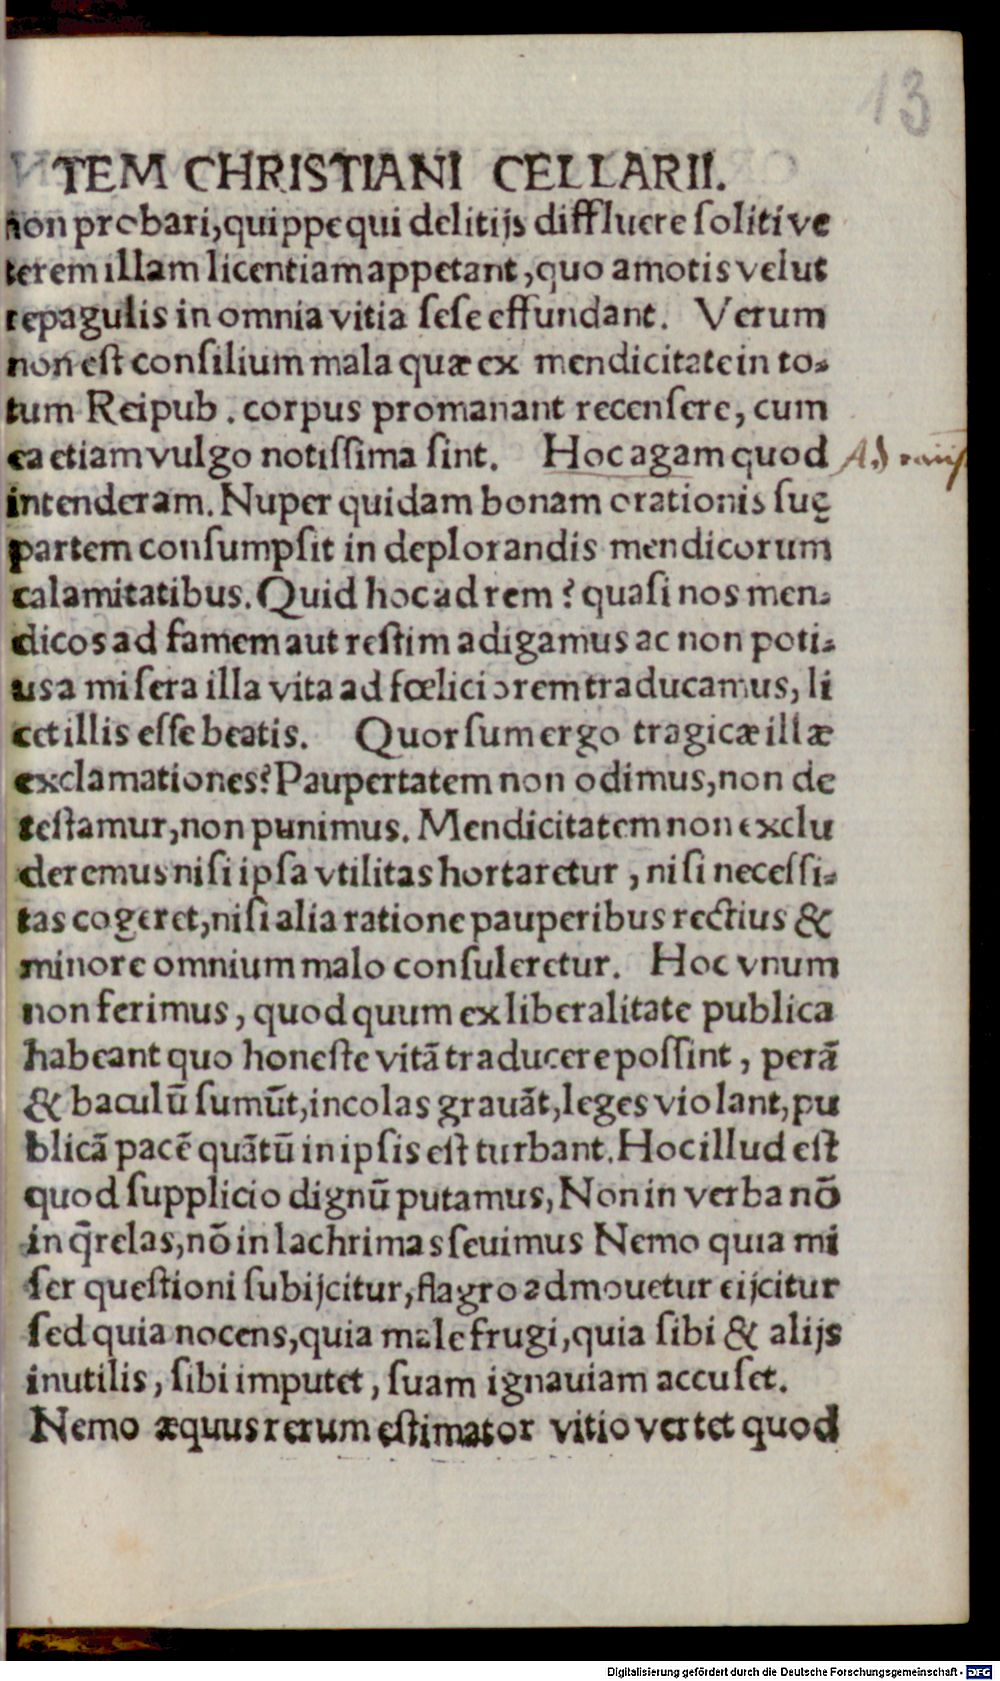 13
TEM CHRISTIANI CELLARII.
non probari, quippe qui delitijs diffluere soliti ve
terem illam licentiam appetant, quo amotis velut
repagulis in omnia vitia sese effundant. Verum
non est consilium mala quæ ex mendicitate in to-
tum Reipub. corpus promanant recensere, cum
ea etiam vulgo notissima sint. Hoc agam quod
intenderam. Nuper quidam bonam orationis suę
partem consumpsit in deplorandis mendicorum
calamitatibus. Quid hoc ad rem? quasi nos men-
dicos ad famem aut restim adigamus ac non poti-
us a misera illa vita ad fœliciorem traducamus, li
cet illis esse beatis. Quorsum ergo tragicæ illæ
exclamationes? Paupertatem non odimus, non de
testamur, non punimus. Mendicitatem non exclu
deremus nisi ipsa vtilitas hortaretur, nisi necessi-
tas cogeret, nisi alia ratione pauperibus rectius &
minore omnium malo consuleretur. Hoc vnum
non ferimus, quod quum ex liberalitate publica
habeant quo honeste vitã traducere possint, perã
& baculũ sumũt, incolas grauãt, leges violant, pu
blicã pacẽ quãtũ in ipsis est turbant. Hoc illud est
quod supplicio dignũ putamus, Non in verba nõ
in q̃relas, nõ in lachrimas seuimus Nemo quia mi
ser questioni subijcitur, flagro admouetur eijcitur
sed quia nocens, quia male frugi, quia sibi & alijs
inutilis, sibi imputet, suam ignauiam accuset.
Nemo æquus rerum estimator vitio vertet quod
Digitalisierung gefördert durch die Deutsche Forschungsgemeinschaft - DFG